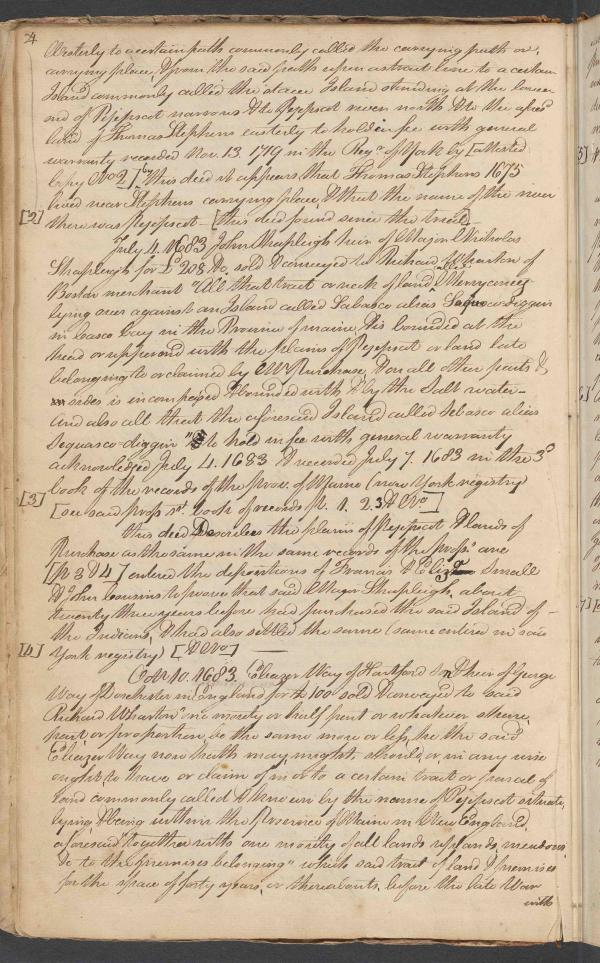 24
Westerly to a certain path commonly called the carrying path or
carrying place, & from the said path upon a strait line to a certain
Island commonly called the stave Island standing at the lower
end of Pejepscot narrows & the Pejepscot river north & to the afores'd
land of Thomas Stephens easterly to hold in fee with general
warranty recorded Nov. 13. 1719 in the Reg'y of York by [attested
copy No 2] by this deed it appears that Thomas Stephens 1675
lived near Stephens carrying place, & that the name of the river
[2] there was Pejepscot — [this deed found since the trial] —
July 4. 1683 John Shapleigh heir of Major Nicholas
Shapleigh for £208 &c, sold & conveyed to Richard Wharton of
Boston merchant "All that tract or neck of land called Merryconeeg
lying over against an Island called Sabasco alias Sequasco diggin
in Casco bay in the Province of Maine, & is bounded at the
head or upper end with the plains of Pejepscot or land late
belonging to or claimed by Mr Purchase, & on all other parts &
sides is incompassed & bounded with & by the Salt water —
And also all that the aforesaid Island called Sebasco alias
Sequasco-diggin" to hold in fee with general warranty
acknowledged July 4. 1683 & recorded July 7. 1683 in the 3d
book of the records of the Prov. of Maine (now York registry)
[3] [see said prop's book of records p. 1. 2 3 & No ]
this deed Describes the plains of Pejepscot & lands of
Purchase as the same in the same records of the prop's are
[p 3 & 4] entered the depositions of Francis & Eliz'a Small
& John Cousins to prove that said Major Shapleigh, about
twenty three years before had purchased the said Island of —
the Indians, & had also settled the same (same entered in said
[4] York registry) [& No ] —
Octr 10. 1683. Eleazer Way of Hartford Son & heir of George
Way of Dorchester in England for £100 sold & conveyed to said
Richard Wharton "one moiety or half part or whatever share,
part, or proportion, be the same more or less, he the said
Eleazer Way now hath may, might, should, or in any wise
ought, to have or claim of in or to a certain tract or parcel of
land commonly called & known by the name of Pejepscot situate,
lying & being within the Province of Maine in New England,
aforesaid together with one moiety of all lands uplands, meadows
&c to the premises belonging" which said tract of land & premises
for the space of forty years, or thereabouts, before the late War
with